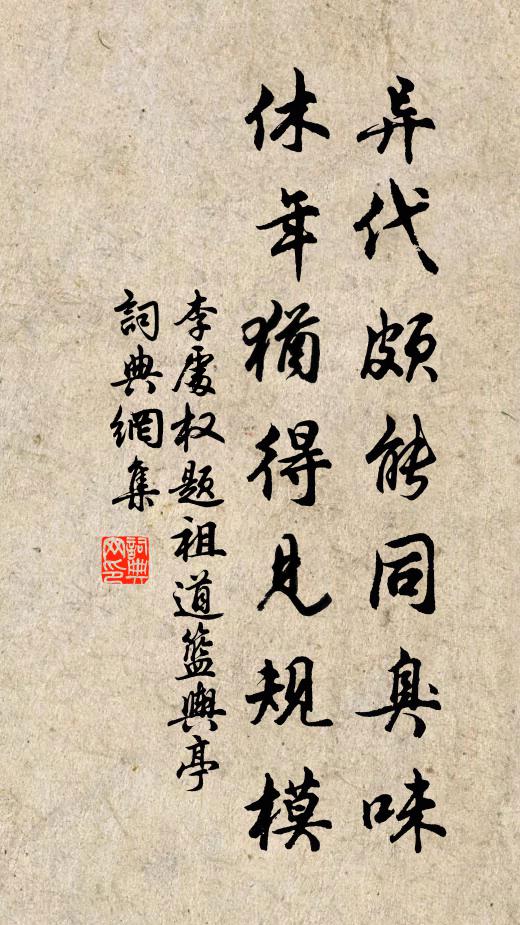 异代颇能同臭味
休年犹得见规模
李處权题祖道篮舆亭
詞典網集
詞典网印